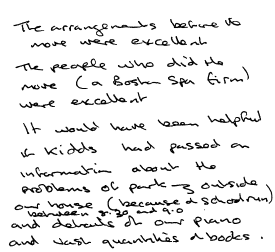 The arrangements before the
move were excellent
The people who did the
move (a Boston Spa firm)
were excellent
It would have been helpful
if Kidds had passed on
information about the
problems of parking outside
our house (because of school run)
between 8.30 and 9.0
and details of our piano
and vast quantities of books.